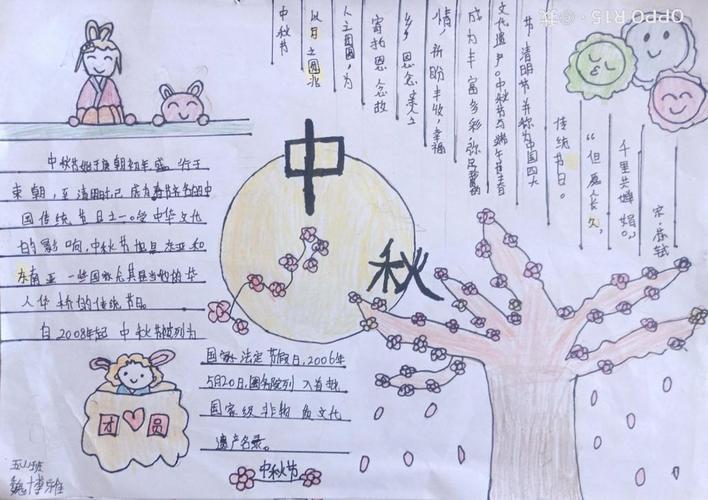 中秋节
以月之圆兆
人之团圆，为
寄托思念故
乡，思念亲人之
情，祈盼丰收、幸福，
成为丰富多彩、弥足珍贵的
文化遗产。中秋节与端午节、春
节、清明节并称为中国四大
传统节日。
“但愿人长久，
千里共婵娟。”
宋·苏轼
中
秋
中秋节始于唐朝初年，盛 行于
宋朝，至 清时,已 成为
国传统 节日之一。受 中华文化
的影 响,中秋节也是东亚和
东南亚 一些国家尤其是当地的华
人华 侨的传统节日。
自2008年起 中秋节被列为
国家 法定节假日,2006年
5月20日,国务院列 入首批
国家级 非物 质文化
遗产名录。
团圆
中秋节
OPPO R15